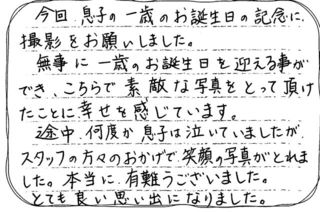 今回、息子の一歳のお誕生日の記念に、
撮影をお願いしました。
無事に一歳のお誕生日を迎える事が
でき、こちらで素敵な写真をとって頂け
たことに幸せを感じています。
途中、何度か息子は泣いていましたが、
スタッフの方々のおかげで、笑顔の写真がとれま
した。本当に、有難うございました。
とても良い思い出になりました。